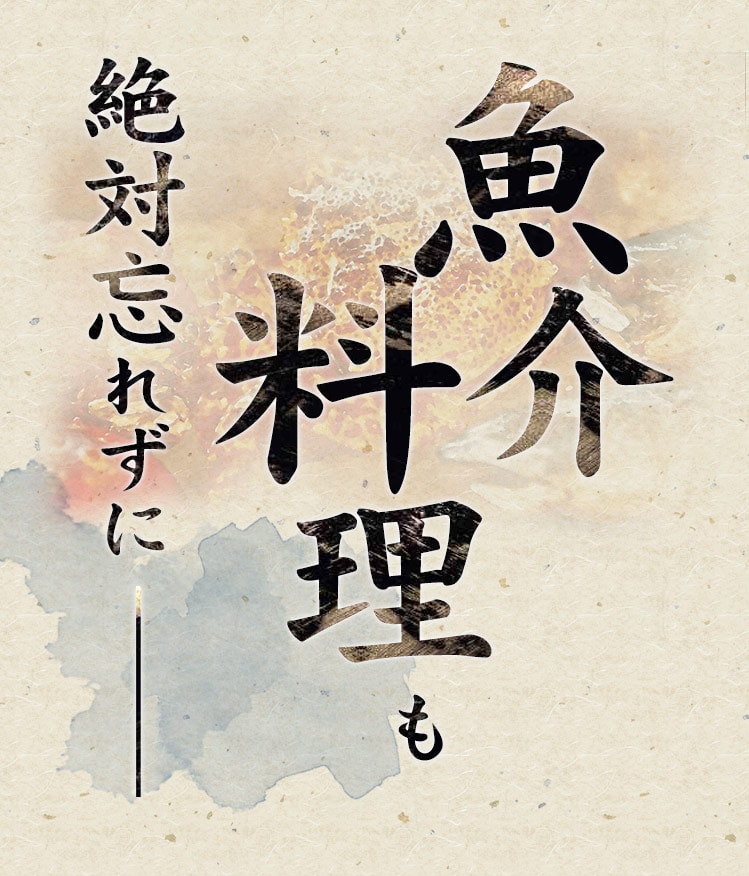 魚介
料理も
絶対忘れずに―